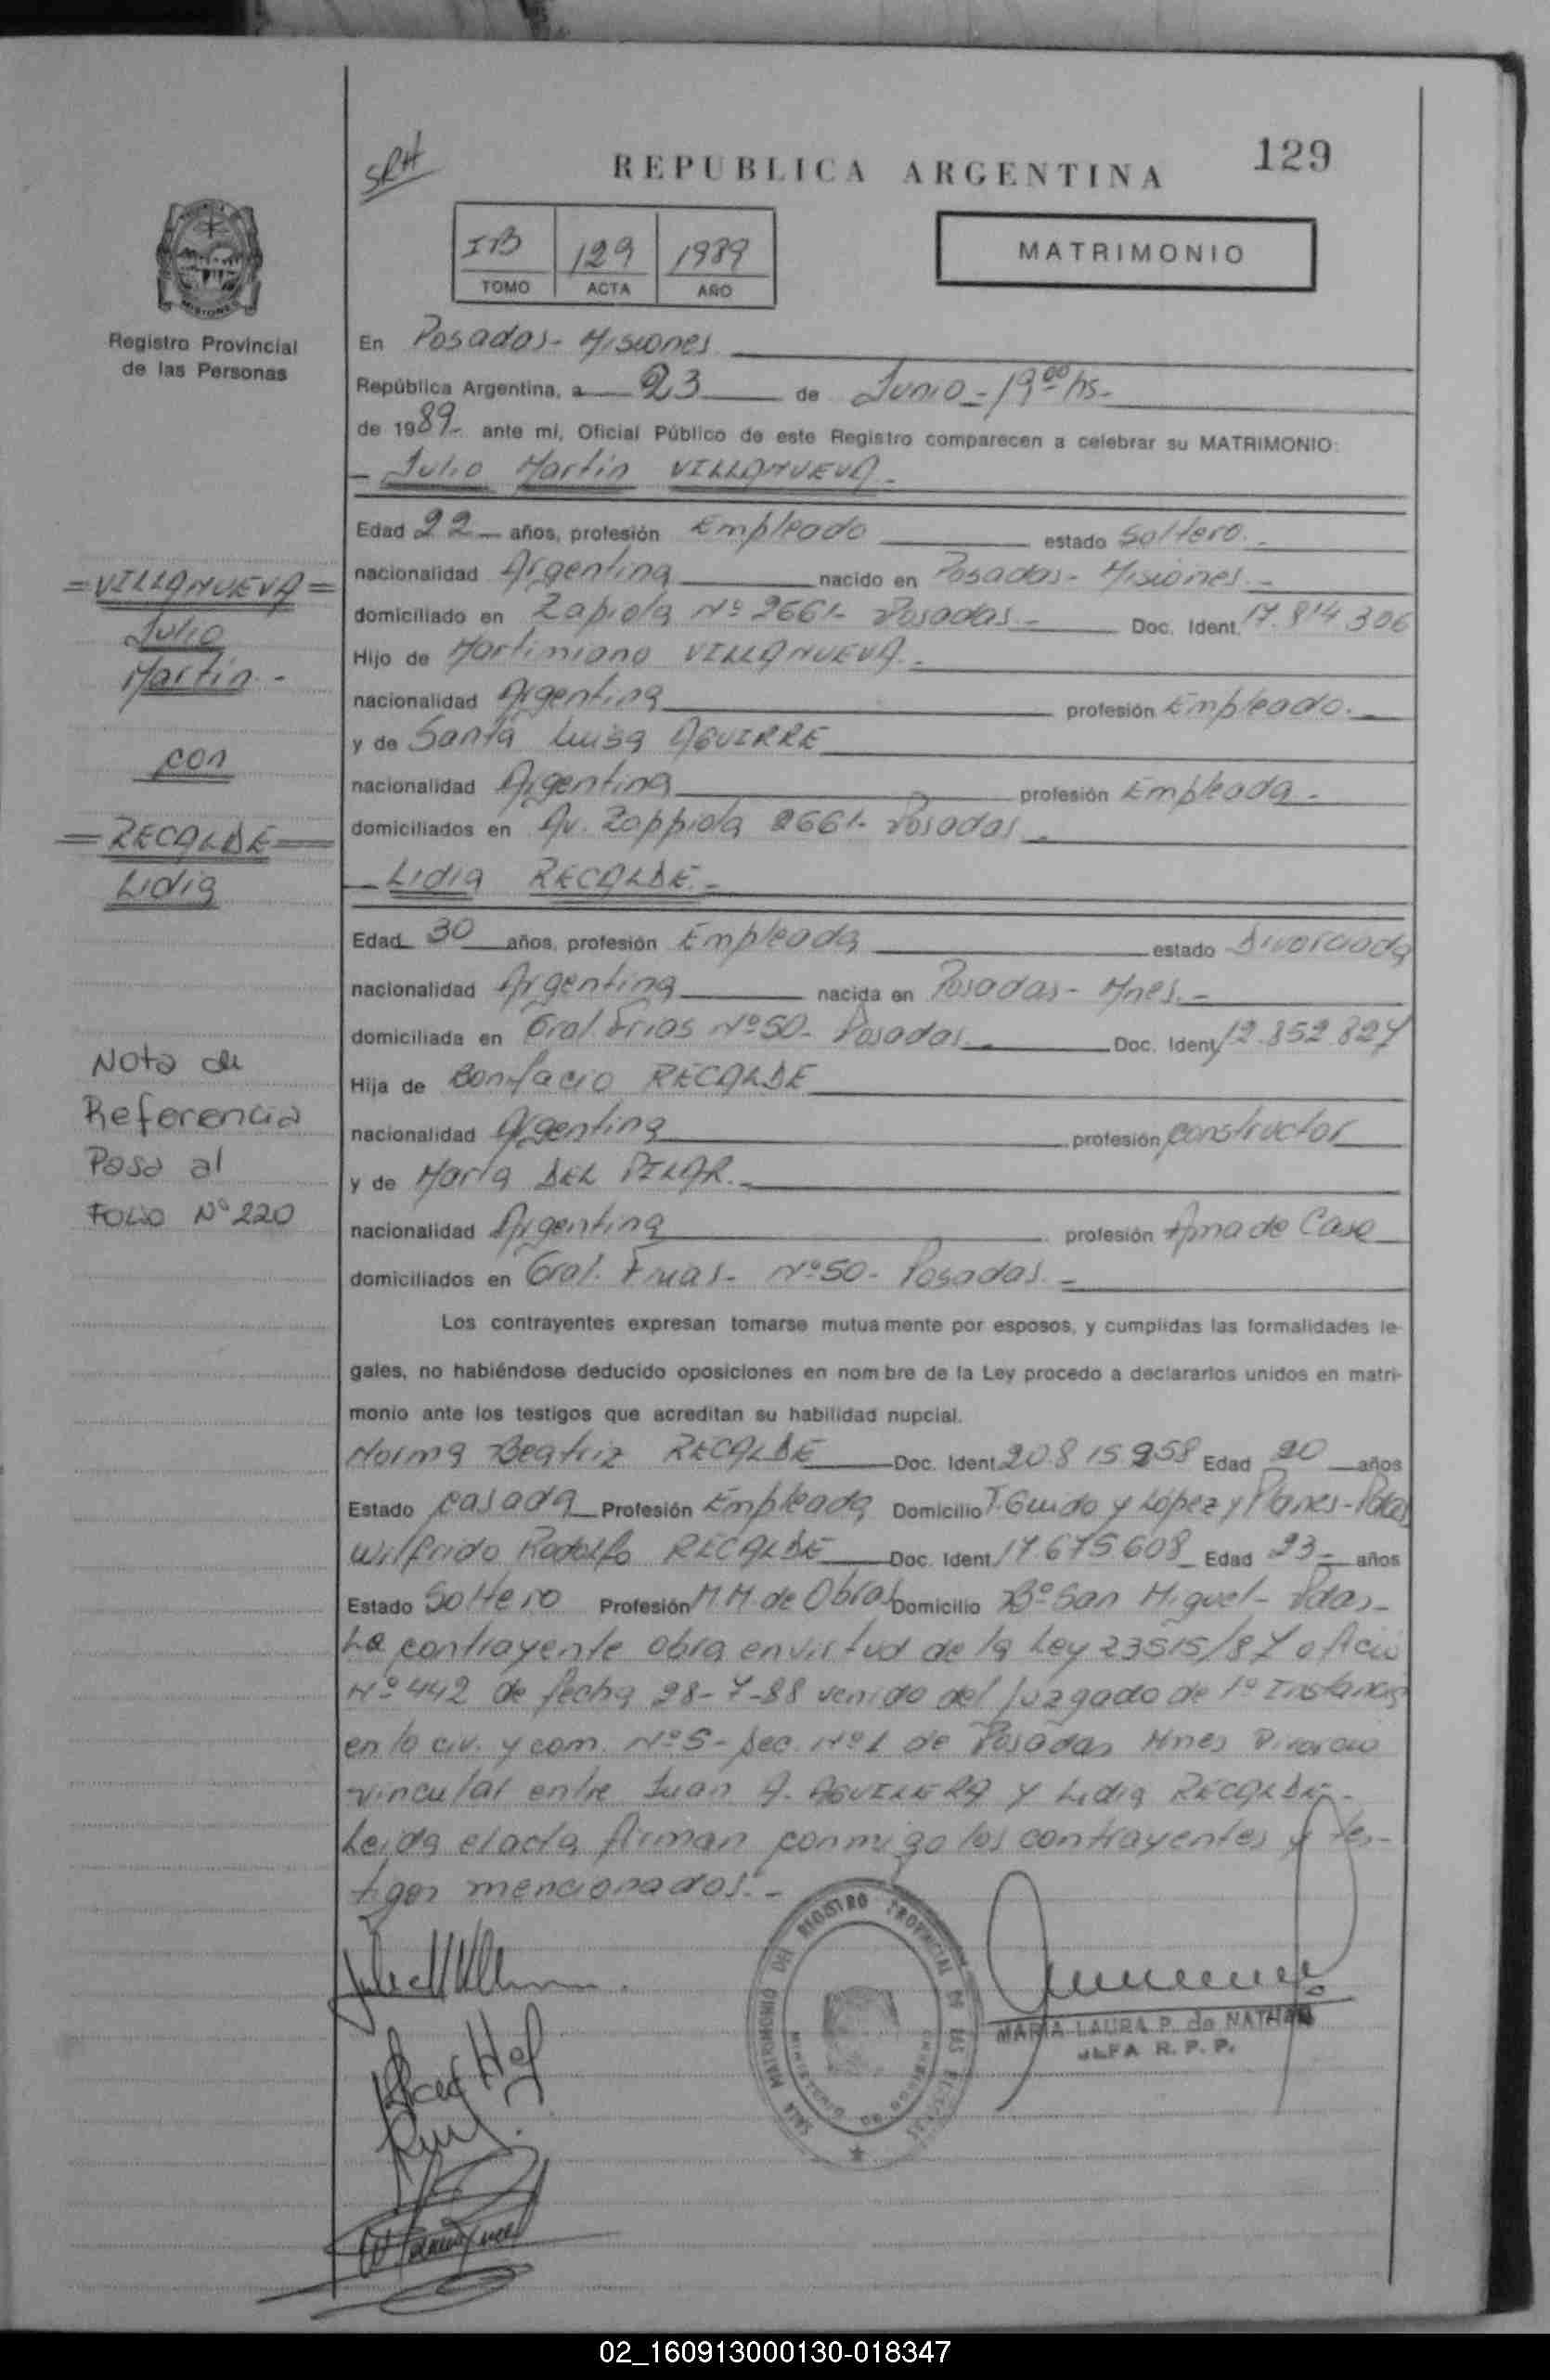 129
SRH
REPUBLICA ARGENTINA
IB 129 1989
TOMO ACTA AÑO
MATRIMONIO
MISIONES
Registro Provincial
de las Personas
En Posadas- Misiones
República Argentina, a 23 de Junio - 19 00 hs-
de 1989- ante mí, Oficial Público de este Registro comparecen a celebrar su MATRIMONIO:
- Julio Martín VILLANUEVA -
Edad 22 - años, profesión Empleado estado Soltero. -
nacionalidad Argentina nacido en Posadas- Misiones. -
domiciliado en Zapiola Nº 2661- Posadas - Doc. Ident. 17.814.306
Hijo de Martiniano VILLANUEVA. -
nacionalidad Argentina profesión Empleado. -
y de Santa Luisa AGUIRRE
nacionalidad Argentina profesión Empleada -
domiciliados en Av. Zappiola 2661- Posadas -
- Lidia RECALDE. -
Edad 30 años, profesión Empleada estado Divorciada
nacionalidad Argentina nacida en Posadas- Mnes. -
domiciliada en Gral. Frias Nº 50- Posadas - Doc. Ident. 12.852.827
Hija de Bonifacio RECALDE
nacionalidad Argentina profesión constructor
y de María DEL PILAR. -
nacionalidad Argentina profesión Ama de Casa
domiciliados en Gral. Frias- Nº 50- Posadas. -
Los contrayentes expresan tomarse mutuamente por esposos, y cumplidas las formalidades le-
gales, no habiéndose deducido oposiciones en nombre de la Ley procedo a declararlos unidos en matri-
monio ante los testigos que acreditan su habilidad nupcial.
Norma Beatriz RECALDE Doc. Ident. 20.815.958 Edad 20 años
Estado casada Profesión Empleada Domicilio T. Guido y López y Planes - Pdas
Wilfrido Rodolfo RECALDE Doc. Ident. 17.675.608 Edad 23 - años
Estado Soltero Profesión M.M. de Obras Domicilio Bº San Miguel- Pdas-
La contrayente obra en virtud de la Ley 23515/87 oficio
Nº 442 de fecha 28-7-88 venido del Juzgado de 1º Instancia
en lo civ. y com. Nº 5- Sec. Nº 1 de Posadas Mnes Divorcio
vincular entre Juan A. AGUILERA y Lidia RECALDE. -
Leida el acta firman conmigo los contrayentes y tes-
tigos mencionados. -
= VILLANUEVA =
Julio
Martín -
con
= RECALDE =
Lidia
Nota de
Referencia
Pasa al
Folio Nº 220
SALA MATRIMONIO DEL REGISTRO PROVINCIAL DE LAS PERSONAS
MINISTERIO DE GOBIERNO
MARIA LAURA P. de NATHAN
JEFA R. P. P.
02_160913000130-018347